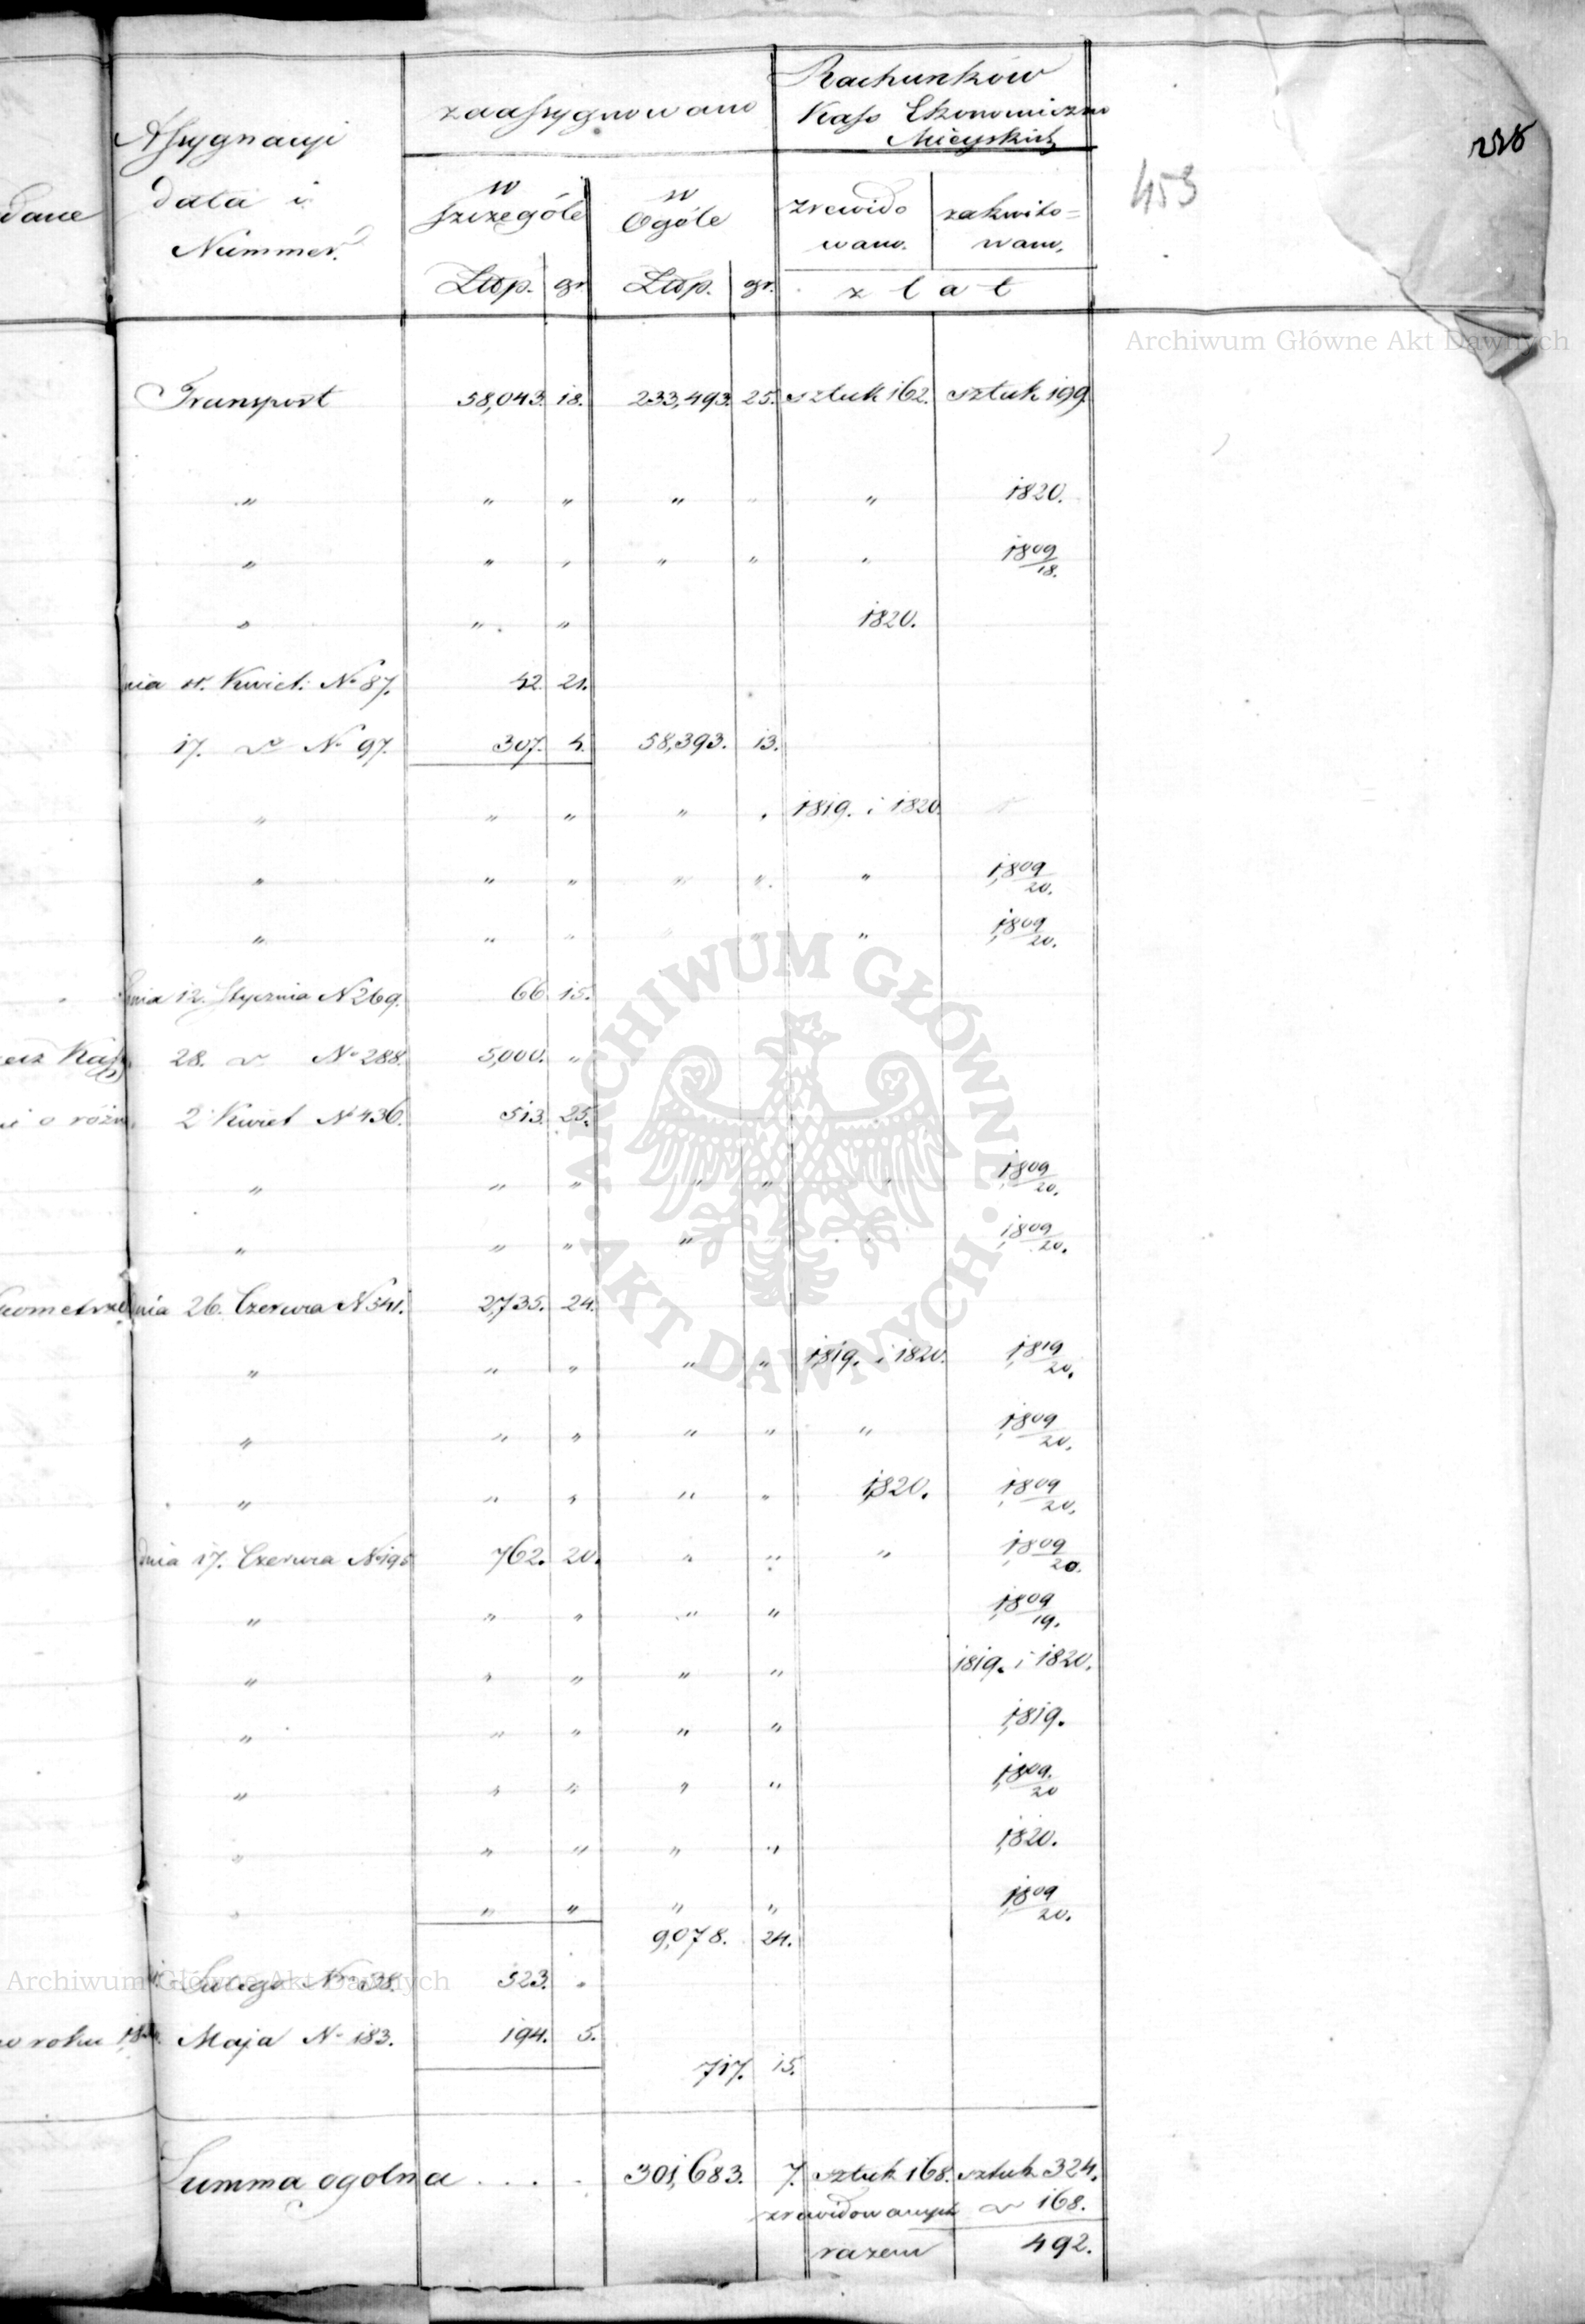 Rachunków
zaassygnowano Kass Ekonomiczno
Assygnacyi Mieyskich
453
data i w w zrewido zakwito=
dane szczególe Ogóle wano. wano.
Nummer.
Złłp. gr. Złłp. gr. z lat
Archiwum Główne Akt Dawnych
Transport 58,043. 18. 233,493. 25. sztuk 162. sztuk 199
" " " " " " 1820.
" " " " " " 1809/18.
" " " 1820.
Kwiet: No 87. 42. 21.
17. do No 97. 307. 4. 58,393. 13.
" " " " " 1819. i 1820.
" " " " " " 1809/20.
" " " " " " 1809/20.
dnia 12. Stycznia No 269. 66. 15.
28. do No 288. 5,000. "
2 Kwiet No 436. 513. 25.
" " " " " " 1809/20.
" " " " 1809/20.
dnia 26. Czerwca No 541. 2,735. 24.
" " " " " 1819. i 1820. 1819/20.
" " " " " " 1809/20.
" " " " " 1820. 1809/20.
dnia 17. Czerwca No 195 762. 20. " " " 1809/20.
" " " " " 1809/19.
" " " " " 1819. i 1820.
" " " " " 1819.
" " " " " 1809./20
" " " " " 1820.
" " " " " 1809/20.
9,078. 24.
Lutego No 38. 523. "
Archiwum Główne Akt Dawnych
roku Maja No 183. 194. 5.
717. 15.
Summa ogolna . . . . 301,683. 7. sztuk 168. sztuk 324.
zrewidowanych do 168.
razem 492.
ARCHIWUM GŁÓWNE · AKT DAWNYCH ·